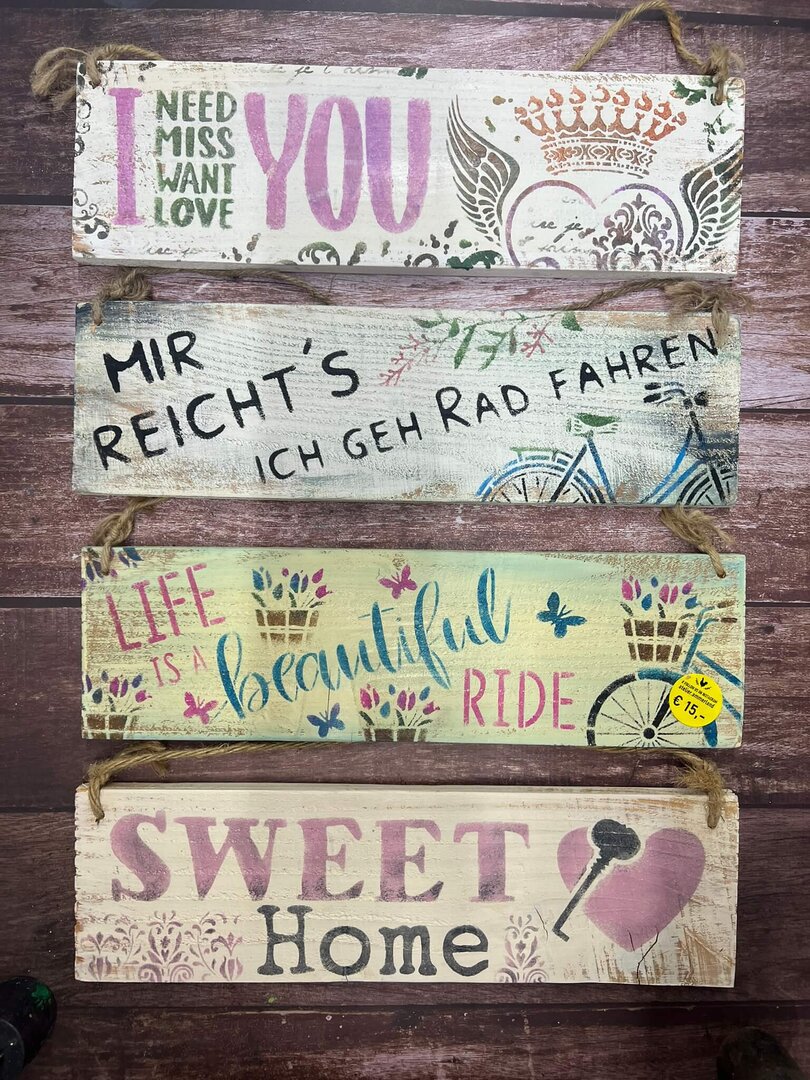 I NEED MISS WANT LOVE YOU
MIR
REICHT'S
ICH GEH RAD FAHREN
LIFE
IS A beautiful
RIDE
€ 15,-
SWEET
Home